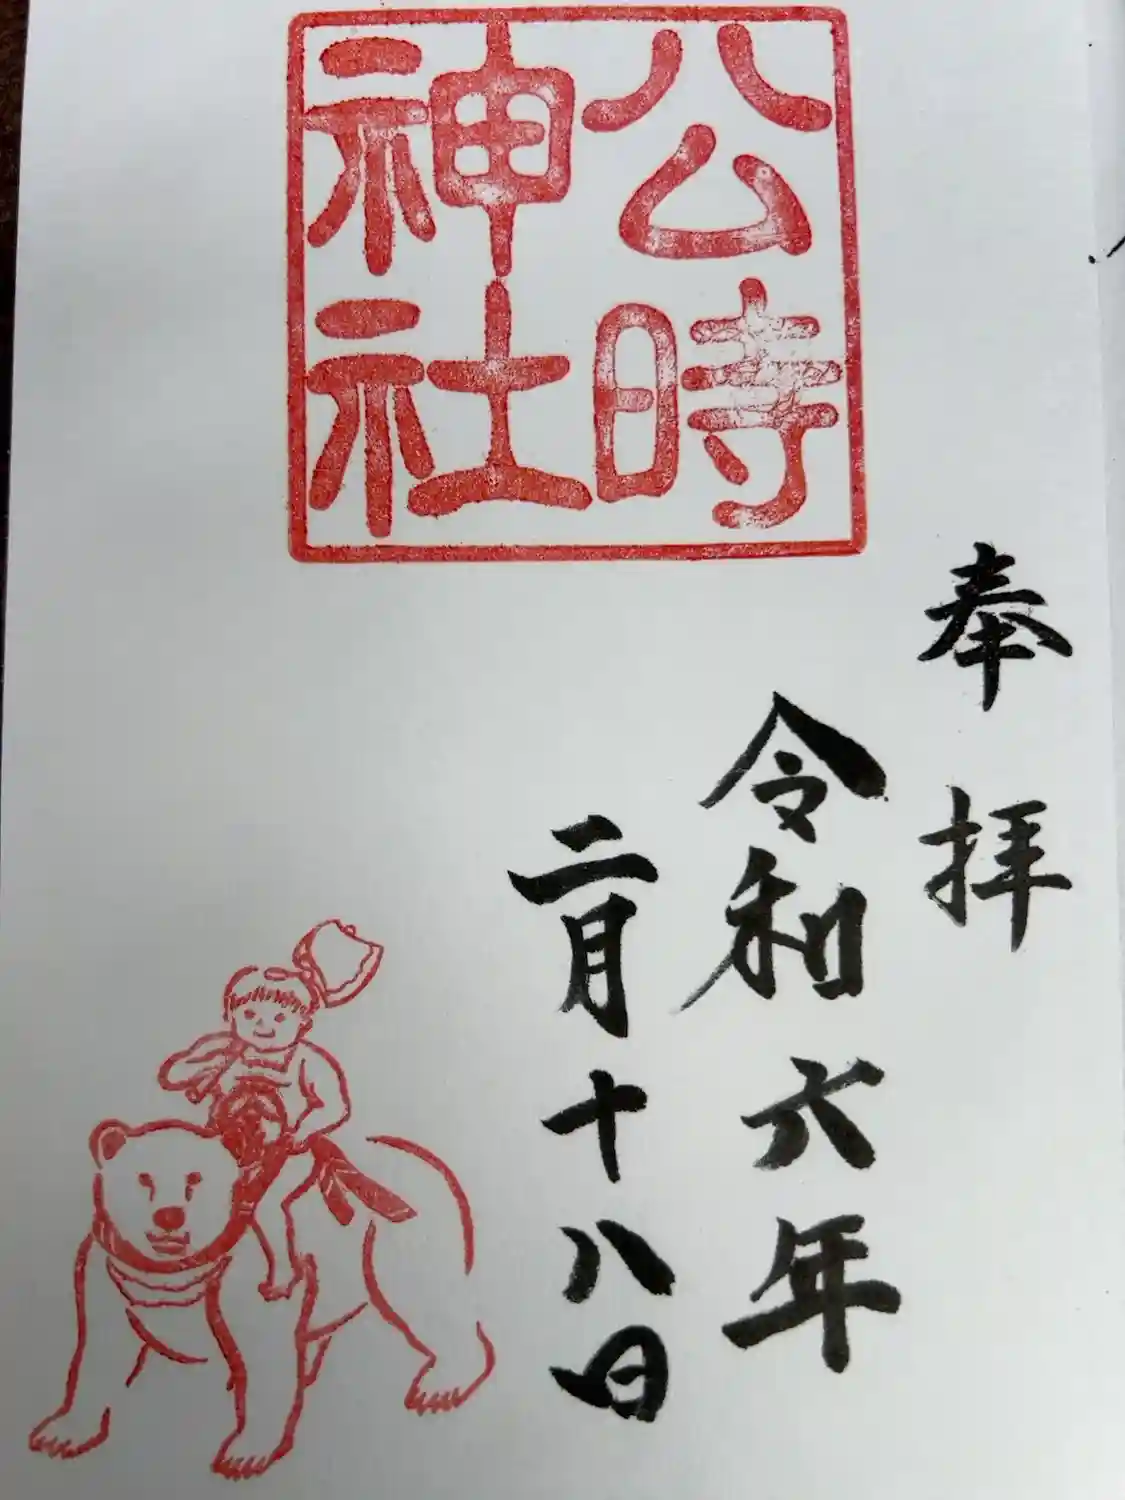 公時
神社
奉拝
令和六年
二月十八日